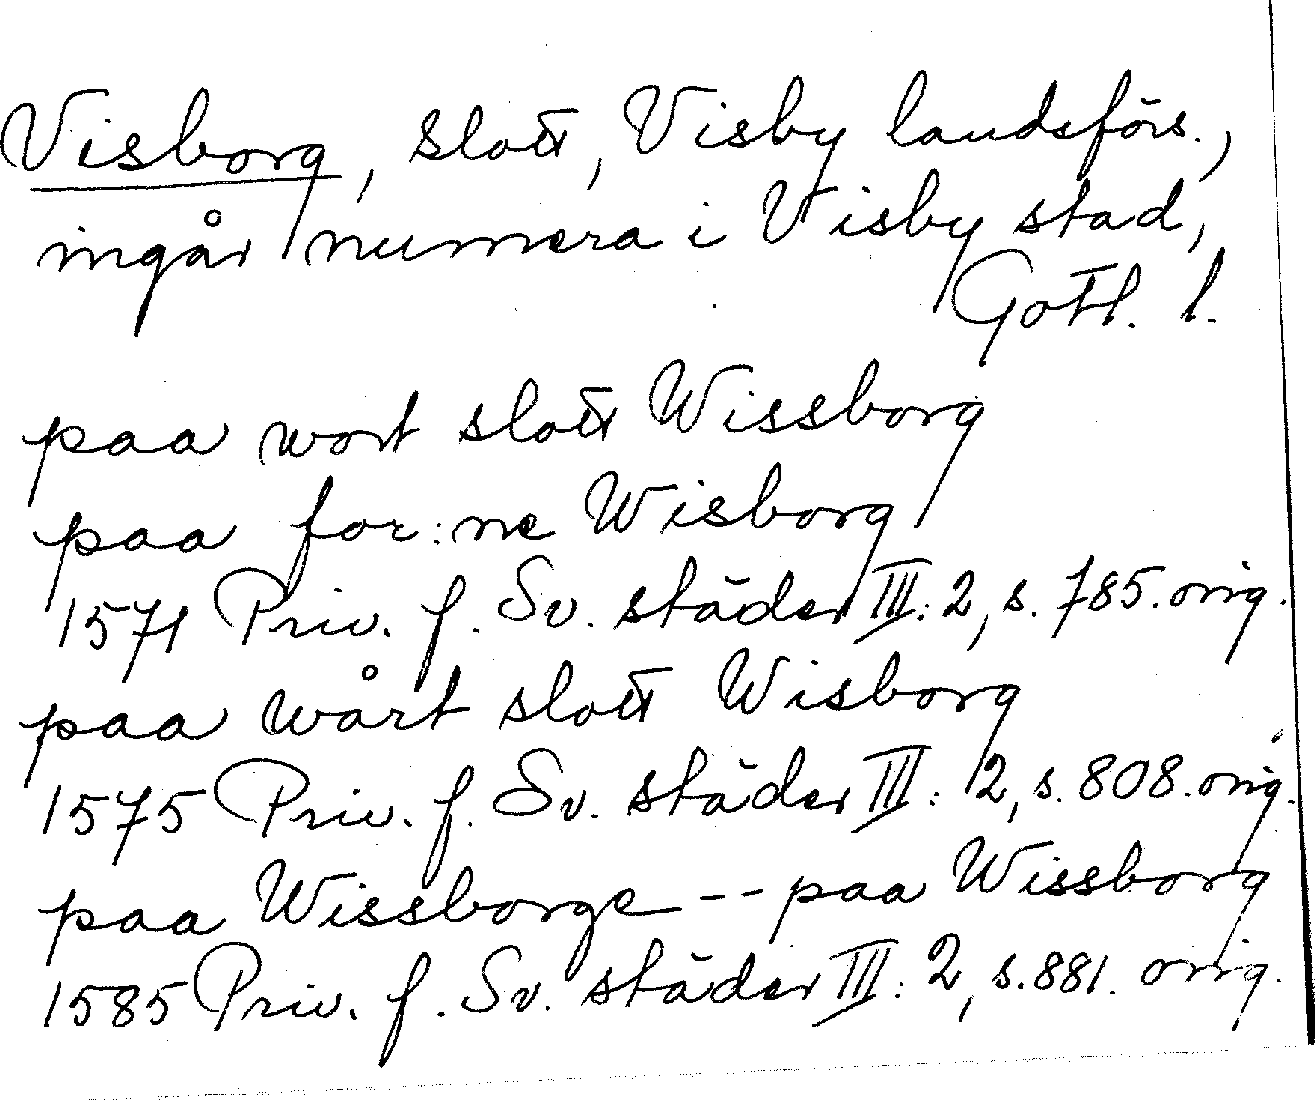 Visborg, slott, Visby landsförs.,
ingår numera i Visby stad,
Gotl. l.
paa wort slott Wissborg
paa for:ne Wisborg
1571 Priv. f. Sv. städer III: 2, s. 785. orig.
paa wårt slott Wisborg
1575 Priv. f. Sv. städer III: 2, s. 808. orig.
paa Wissborge -- paa Wissborg
1585 Priv. f. Sv. städer III: 2, s. 881. orig.